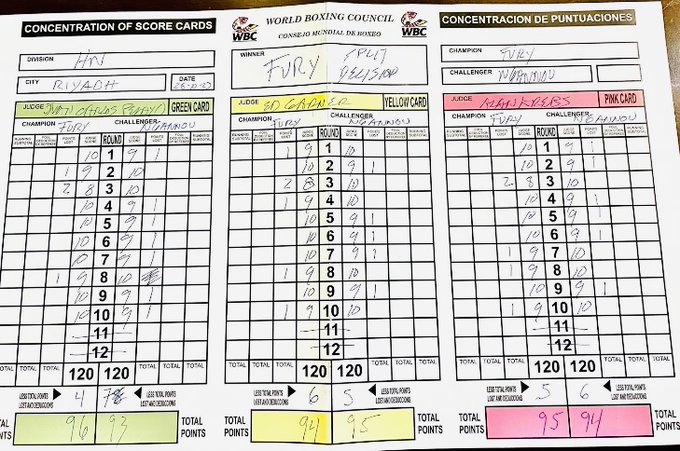 CONCENTRATION OF SCORE CARDS
WBC
WORLD BOXING COUNCIL
CONSEJO MUNDIAL DE BOXEO
WBC
CONCENTRACION DE PUNTUACIONES
DIVISION HW
CITY RIYADH
DATE
WINNER FURY SPLIT DECISION
CHAMPION FURY
CHALLENGER NGANNOU
JUDGE GREEN CARD
CHAMPION CHALLENGER
FURY NGANNOU
ROUND
10 1 9 1
1 9 2 10
2 8 3 10
10 4 9 1
10 5 9 1
10 6 9 1
10 7 9 1
1 9 8 10
10 9 9 1
10 10 9 1
11
12
TOTAL TOTAL TOTAL 120 120 TOTAL TOTAL TOTAL
LESS TOTAL POINTS LOST AND DEDUCCIONS 4 7 LESS TOTAL POINTS LOST AND DEDUCCIONS
TOTAL POINTS 96 93 TOTAL POINTS
JUDGE ED GARNER YELLOW CARD
CHAMPION CHALLENGER
FURY NGANNOU
ROUND
1 9 1 10
10 2 9 1
2 8 3 10
1 9 4 10
10 5 9 1
10 6 9 1
10 7 9 1
1 9 8 10
10 9 9 1
1 9 10 10
11
12
TOTAL TOTAL TOTAL 120 120 TOTAL TOTAL TOTAL
LESS TOTAL POINTS LOST AND DEDUCCIONS 6 5 LESS TOTAL POINTS LOST AND DEDUCCIONS
94 95 TOTAL POINTS
JUDGE ALAN KREBS PINK CARD
CHAMPION CHALLENGER
FURY NGANNOU
ROUND
10 1 9 1
10 2 9 1
2 8 3 10
10 4 9 1
10 5 9 1
10 6 9 1
1 9 7 10
1 9 8 10
10 9 9 1
1 9 10 10
11
12
TOTAL TOTAL TOTAL 120 120 TOTAL TOTAL TOTAL
LESS TOTAL POINTS LOST AND DEDUCCIONS 5 6 LESS TOTAL POINTS LOST AND DEDUCCIONS
95 94 TOTAL POINTS